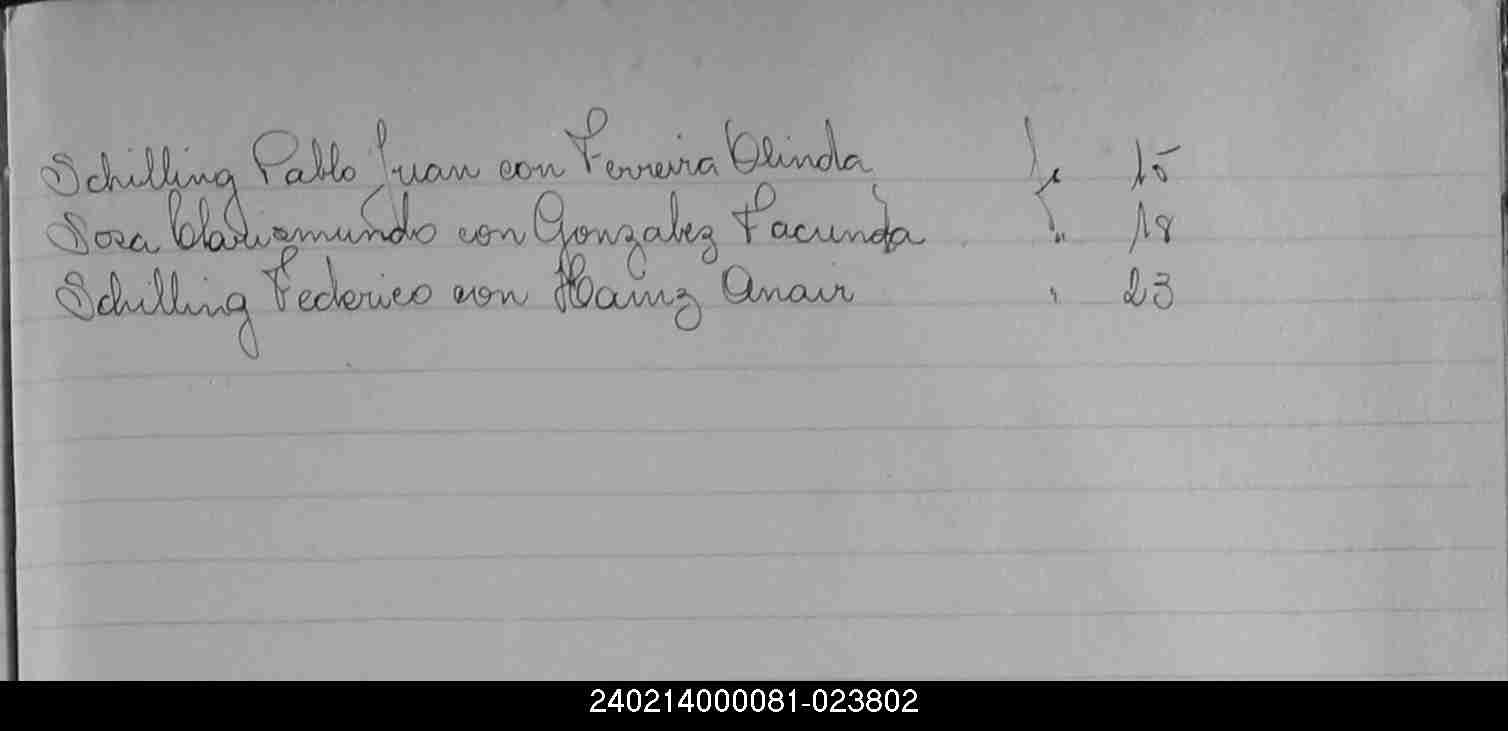 Schilling Pablo Juan con Ferreira Olinda 15
Sosa Clarismundo con Gonzalez Facunda " 18
Schilling Federico con Hainz Anair " 23
240214000081-023802